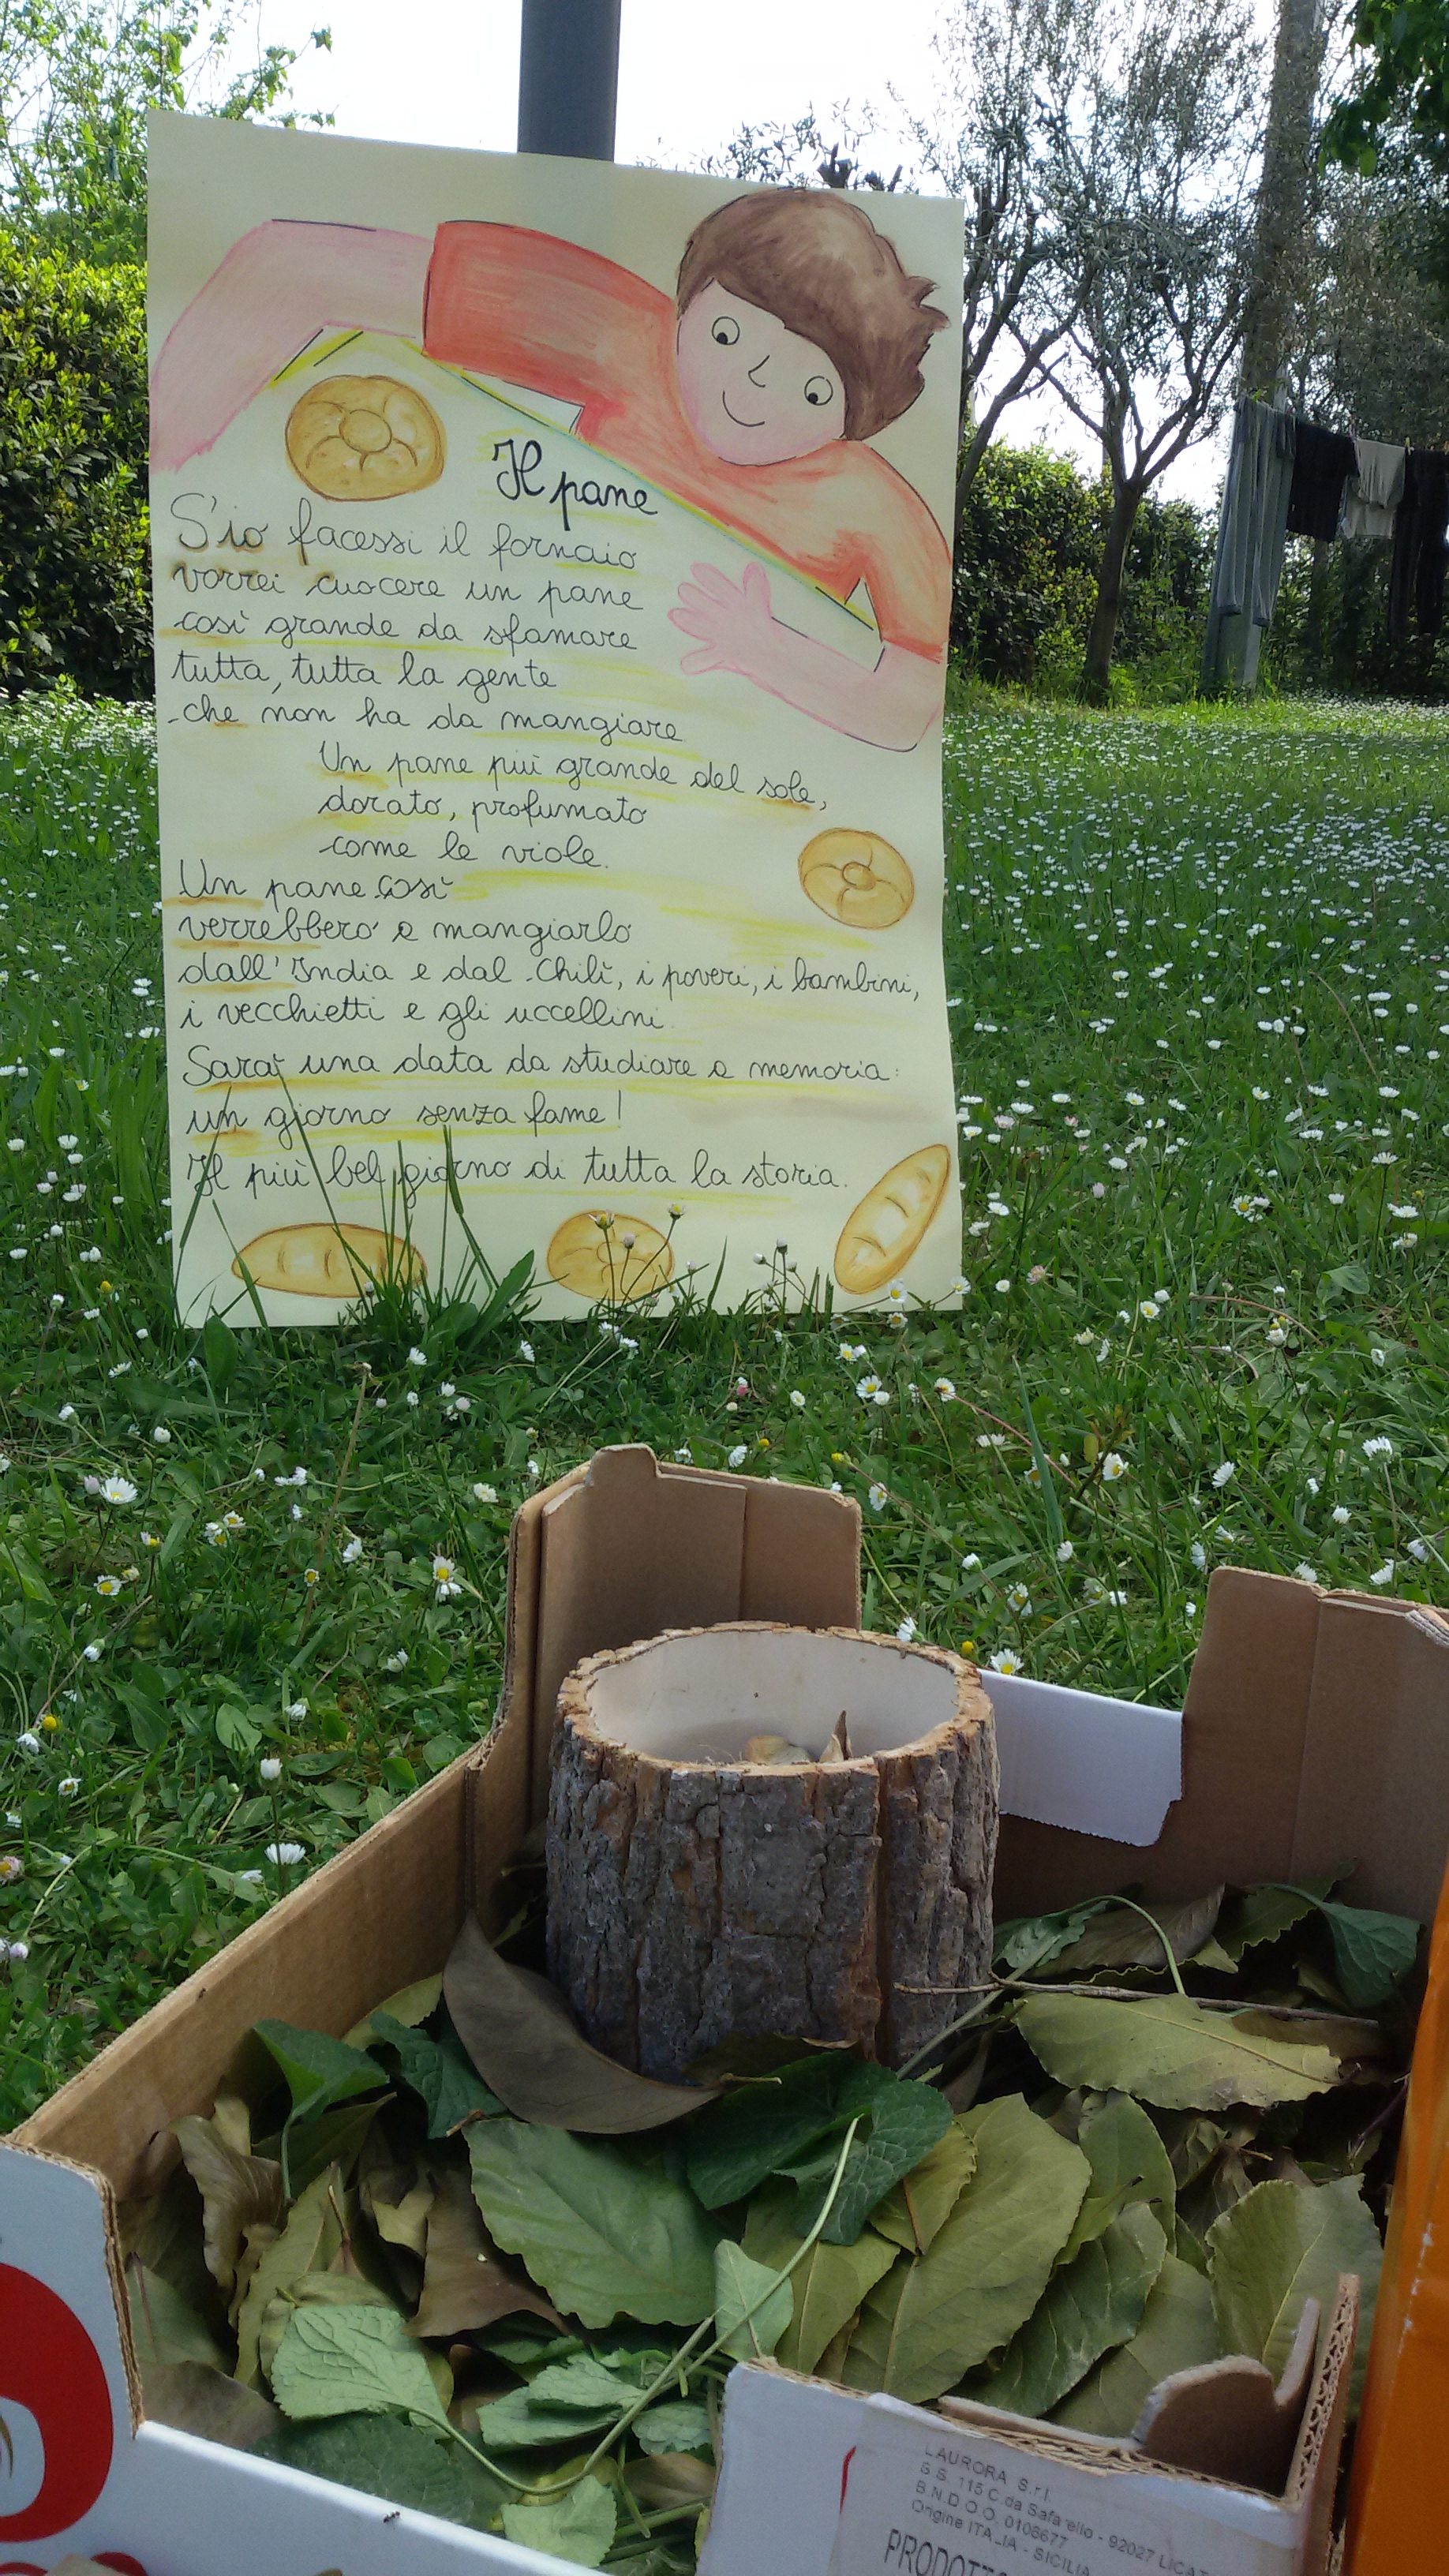 Il pane
S'io facessi il fornaio
vorrei cuocere un pane
così grande da sfamare
tutta, tutta la gente
che non ha da mangiare.
Un pane più grande del sole,
dorato, profumato
come le viole.
Un pane così
verrebbero a mangiarlo
dall'India e dal Chilì, i poveri, i bambini,
i vecchietti e gli uccellini.
Sarà una data da studiare a memoria:
un giorno senza fame!
Il più bel giorno di tutta la storia.
LAURORA S.r.l.
S.S. 115 C.da Safarello - 92027 LICAT
B.N.D.O.O. 0106677
Origine ITALIA - SICILIA